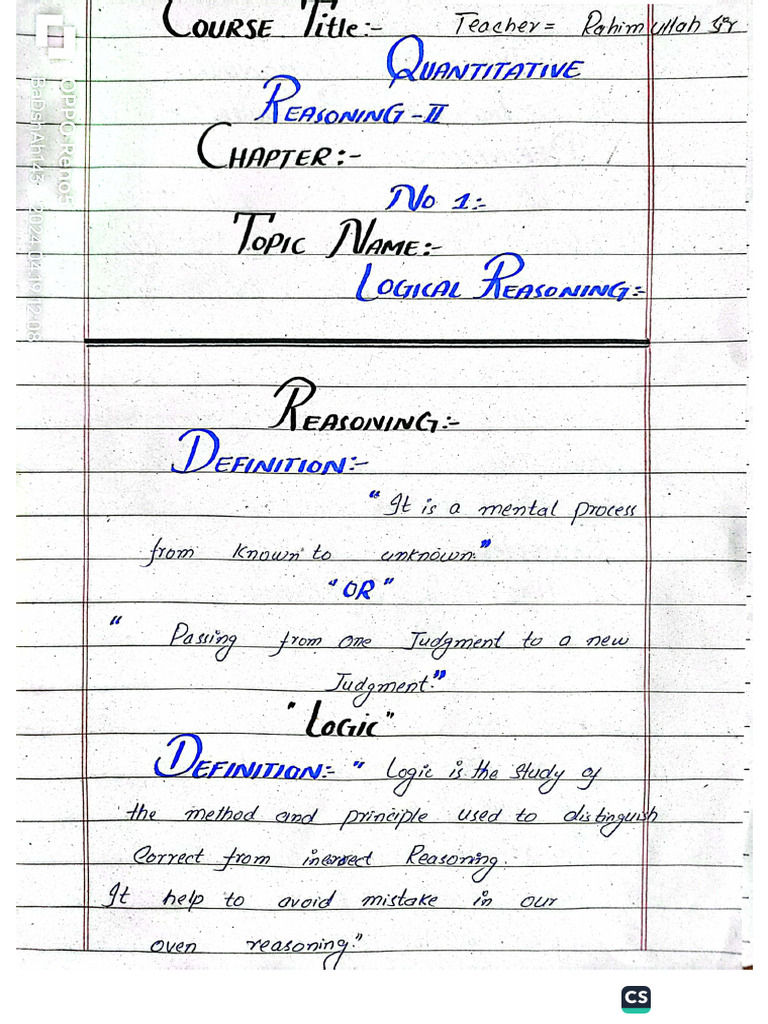 COURSE Title:- Teacher = Rahimullah Sir
QUANTITATIVE
REASONING -II
CHAPTER:-
No 1:-
TOPIC NAME:-
LOGICAL REASONING:-
REASONING:-
DEFINITION:-
"It is a mental process
from known to unknown."
"OR"
" Passing from one Judgment to a new
Judgment."
"LOGIC"
DEFINITION:- " Logic is the study of
the method and principle used to distinguish
Correct from incorrect Reasoning.
It help to avoid mistake in our
oven reasoning."
OPPO Reno5
BaDshAh143 2024.04.19 12:08
CS